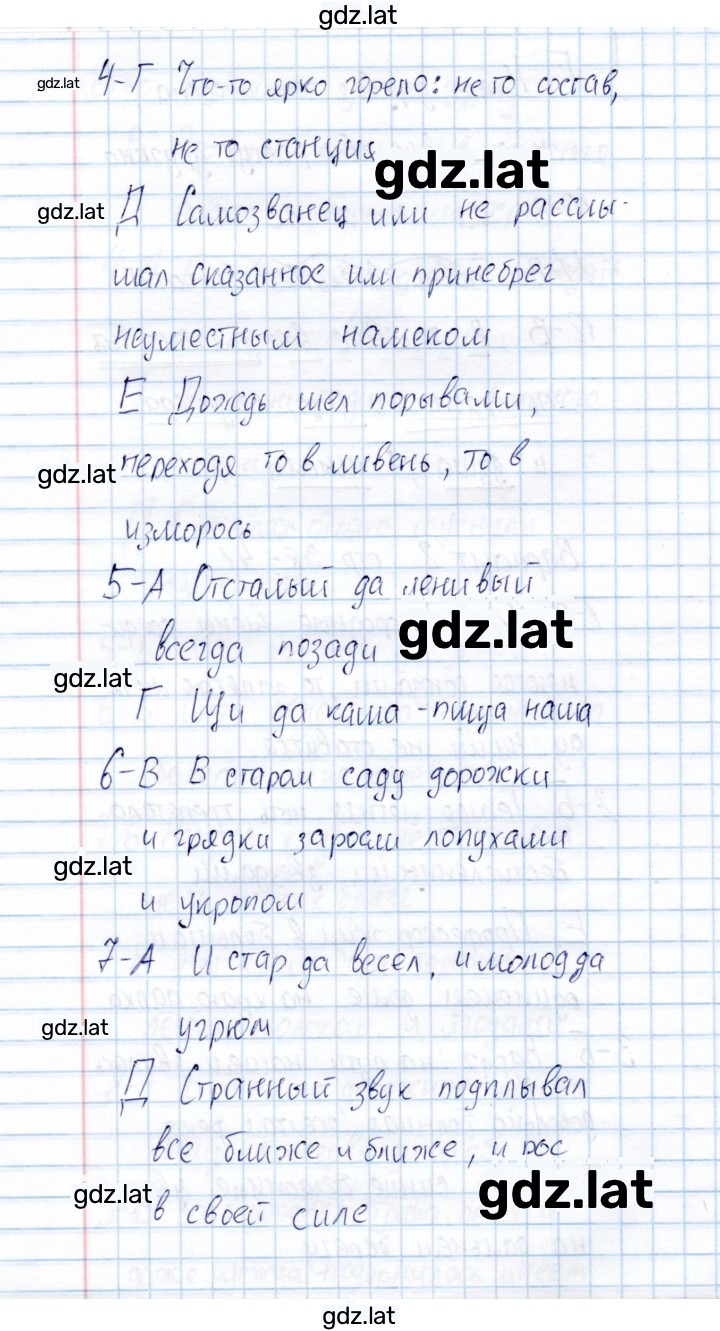 gdz.lat
gdz.lat 4-Г Что-то ярко горело: не то состав,
не то станция
gdz.lat
gdz.lat Д Самозванец или не расслы-
шал сказанное или принебрег
неуместным намеком
Е Дождь шел порывами,
gdz.lat переходя то в ливень, то в
изморось
5-А Отсталый да ленивый
всегда позади gdz.lat
gdz.lat
Г Щи да каша - пища наша
6-В В старом саду дорожки
и грядки заросли лопухами
gdz.lat
и укропом
7-А И стар да весел, и молод да
gdz.lat угрюм
Д Странный звук подплывал
все ближе и ближе, и рос
gdz.lat в своей силе gdz.lat
gdz.lat